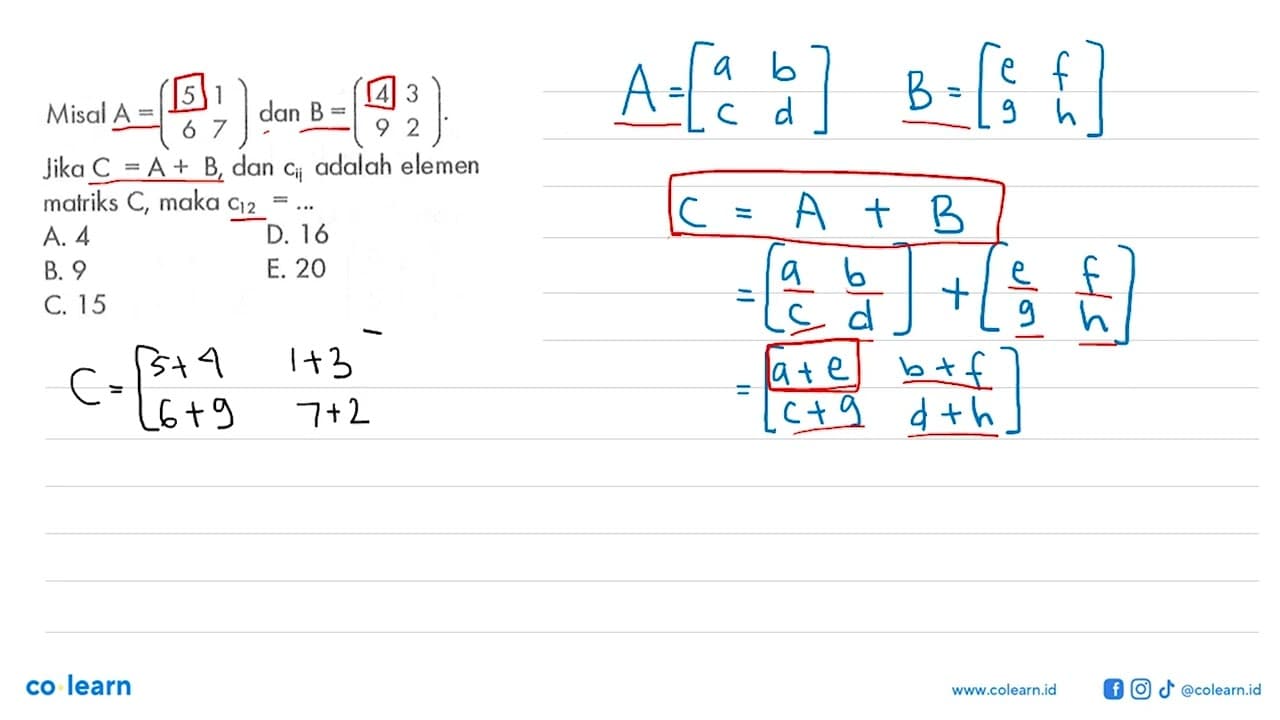 Misal A = ( 5 1 6 7 ) dan B = ( 4 3 9 2 ).
Jika C = A + B, dan cij adalah elemen
matriks C, maka c12 = ...
A. 4 D. 16
B. 9 E. 20
C. 15
C = [ 5+4 1+3
6+9 7+2
A = [ a b c d ] B = [ e f g h ]
C = A + B
= [ a b c d ] + [ e f g h ]
= [ a+e b+f
c+g d+h ]
co learn
www.colearn.id @colearn.id